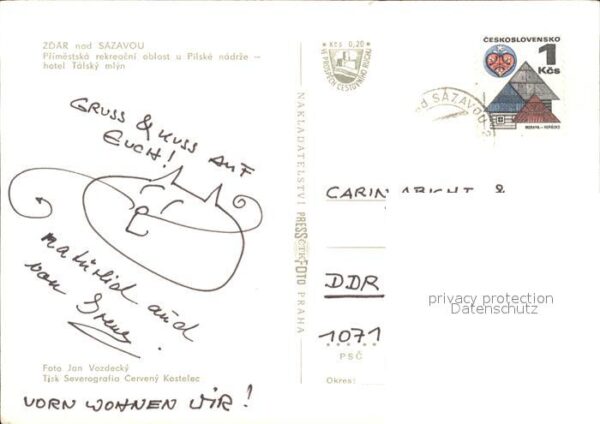 ŽĎÁR nad SÁZAVOU
Příměstská rekreační oblast u Pilské nádrže –
hotel Tálský mlýn
GRUSS & KUSS AUF
EUCH!
natürlich auch
von
Foto Jan Vozdecký
Tisk Severografia Červený Kostelec
VORN WOHNEN WIR!
Kčs 0,20
VE PROSPĚCH CESTOVNÍHO RUCHU
NAKLADATELSTVÍ PRESSFOTO PRAHA
ČTK
ČESKOSLOVENSKO
1
Kčs
d SÁZAVOU
CARIN &
DDR
1071
PSČ
Okres:
privacy protection
Datenschutz